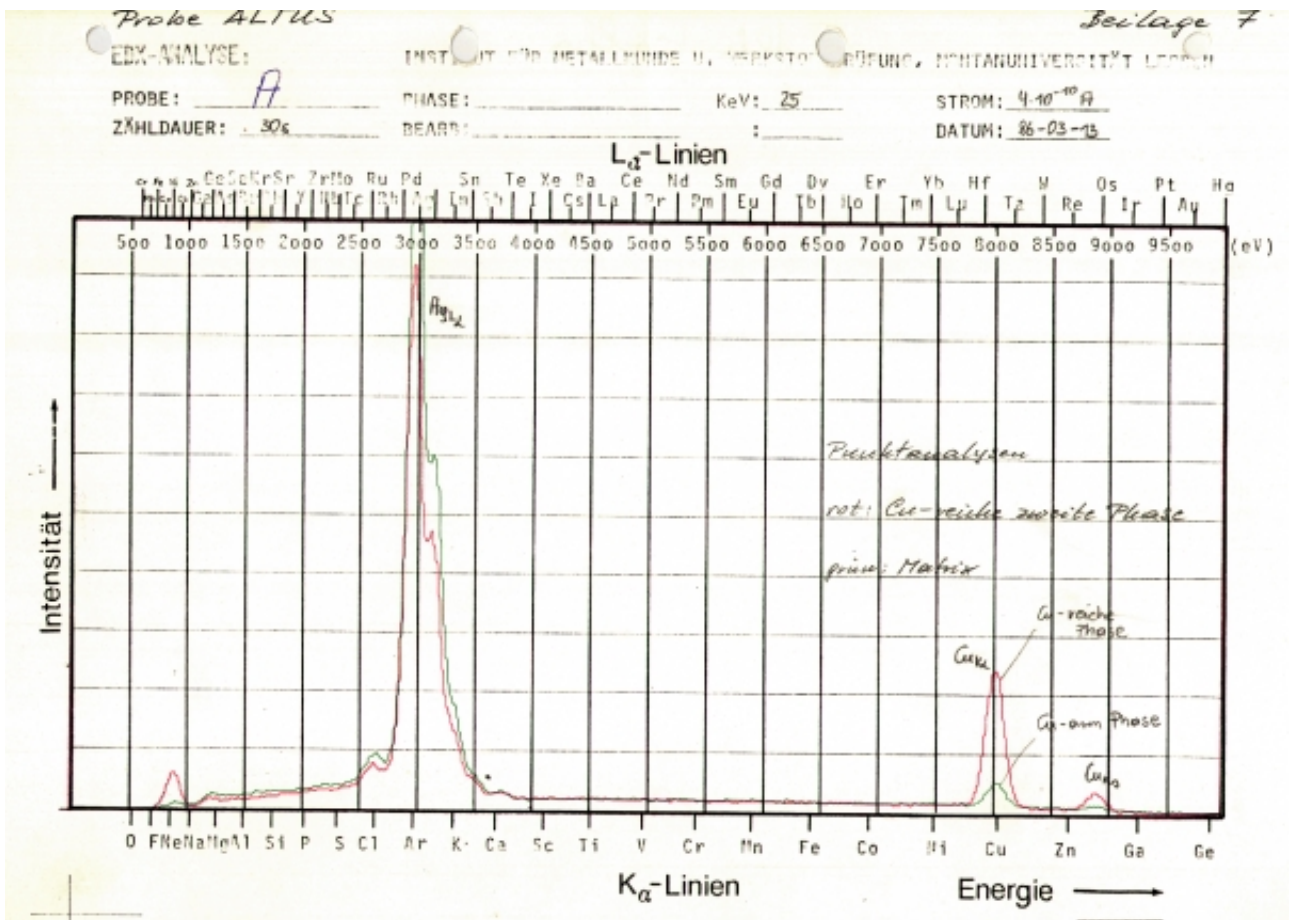 Probe ALTUS Beilage 7
EDX-ANALYSE: INSTITUT FÜR METALLKUNDE U. WERKSTOFFPRÜFUNG, MONTANUNIVERSITÄT LEOBEN
PROBE: A PHASE: KeV: 25 STROM: 4·10⁻¹⁰ A
ZÄHLDAUER: 30s BEARB: : DATUM: 86-03-13
Lα-Linien
Ce Se Kr Sr Zr Mo Ru Pd Sn Te Xe Ba Ce Nd Sm Gd Dy Er Yb Hf W Os Pt Hg
Y Nb Tc Rh Ag In Sb I Cs La Pr Pm Eu Tb Ho Tm Lu Ta Re Ir Au
500 1000 1500 2000 2500 3000 3500 4000 4500 5000 5500 6000 6500 7000 7500 8000 8500 9000 9500 (eV)
AgLα
Punktanalysen
rot: Cu-reiche zweite Phase
grün: Matrix
Cu-reiche
Phase
CuKα
Cu-arm Phase
CuKβ
Intensität
O F Ne Na Mg Al Si P S Cl Ar K Ca Sc Ti V Cr Mn Fe Co Ni Cu Zn Ga Ge
Kα-Linien Energie